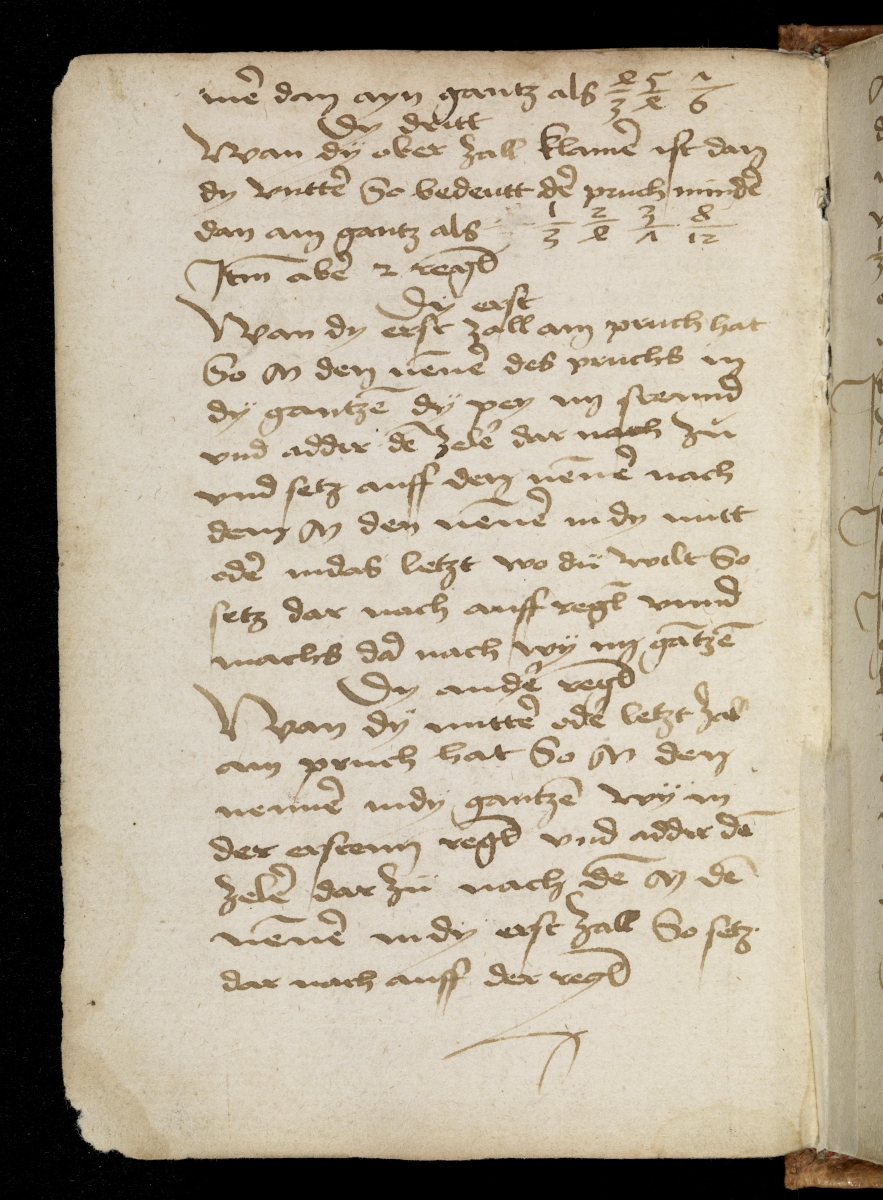 mē dan ayn gantz als 4/3 5/4 7/6
Dy dritt
Wan dy ober zall klainē ist dan
dy vnttē So bedeutt dē pruch mindē
dan ain gantz als 1/3 2/4 3/7 8/12
Itm abē 2 regl
Dy erst
Wan dy erst zall ain pruch hat
So M den nēnē des pruchs in
dy gantzē dy pey im steund
vnd addir dē zelē dar nach zu
vnd setz auff den nēnē nach
dem M den nēnē in dy mitt
odē in das letzt wo du wilt So
setz dar nach auff regl vnnd
machs da nach wy im gātzē
Dy andē regl
Wan dy mittē odē letzt zal
ain pruch hat So M den
nennē in dy gantzē wy in
der erstenn regl vnd addir dē
zelē dar zu nach dē M dē
nēnē in dy erst zall So setz
dar nach auff der regl